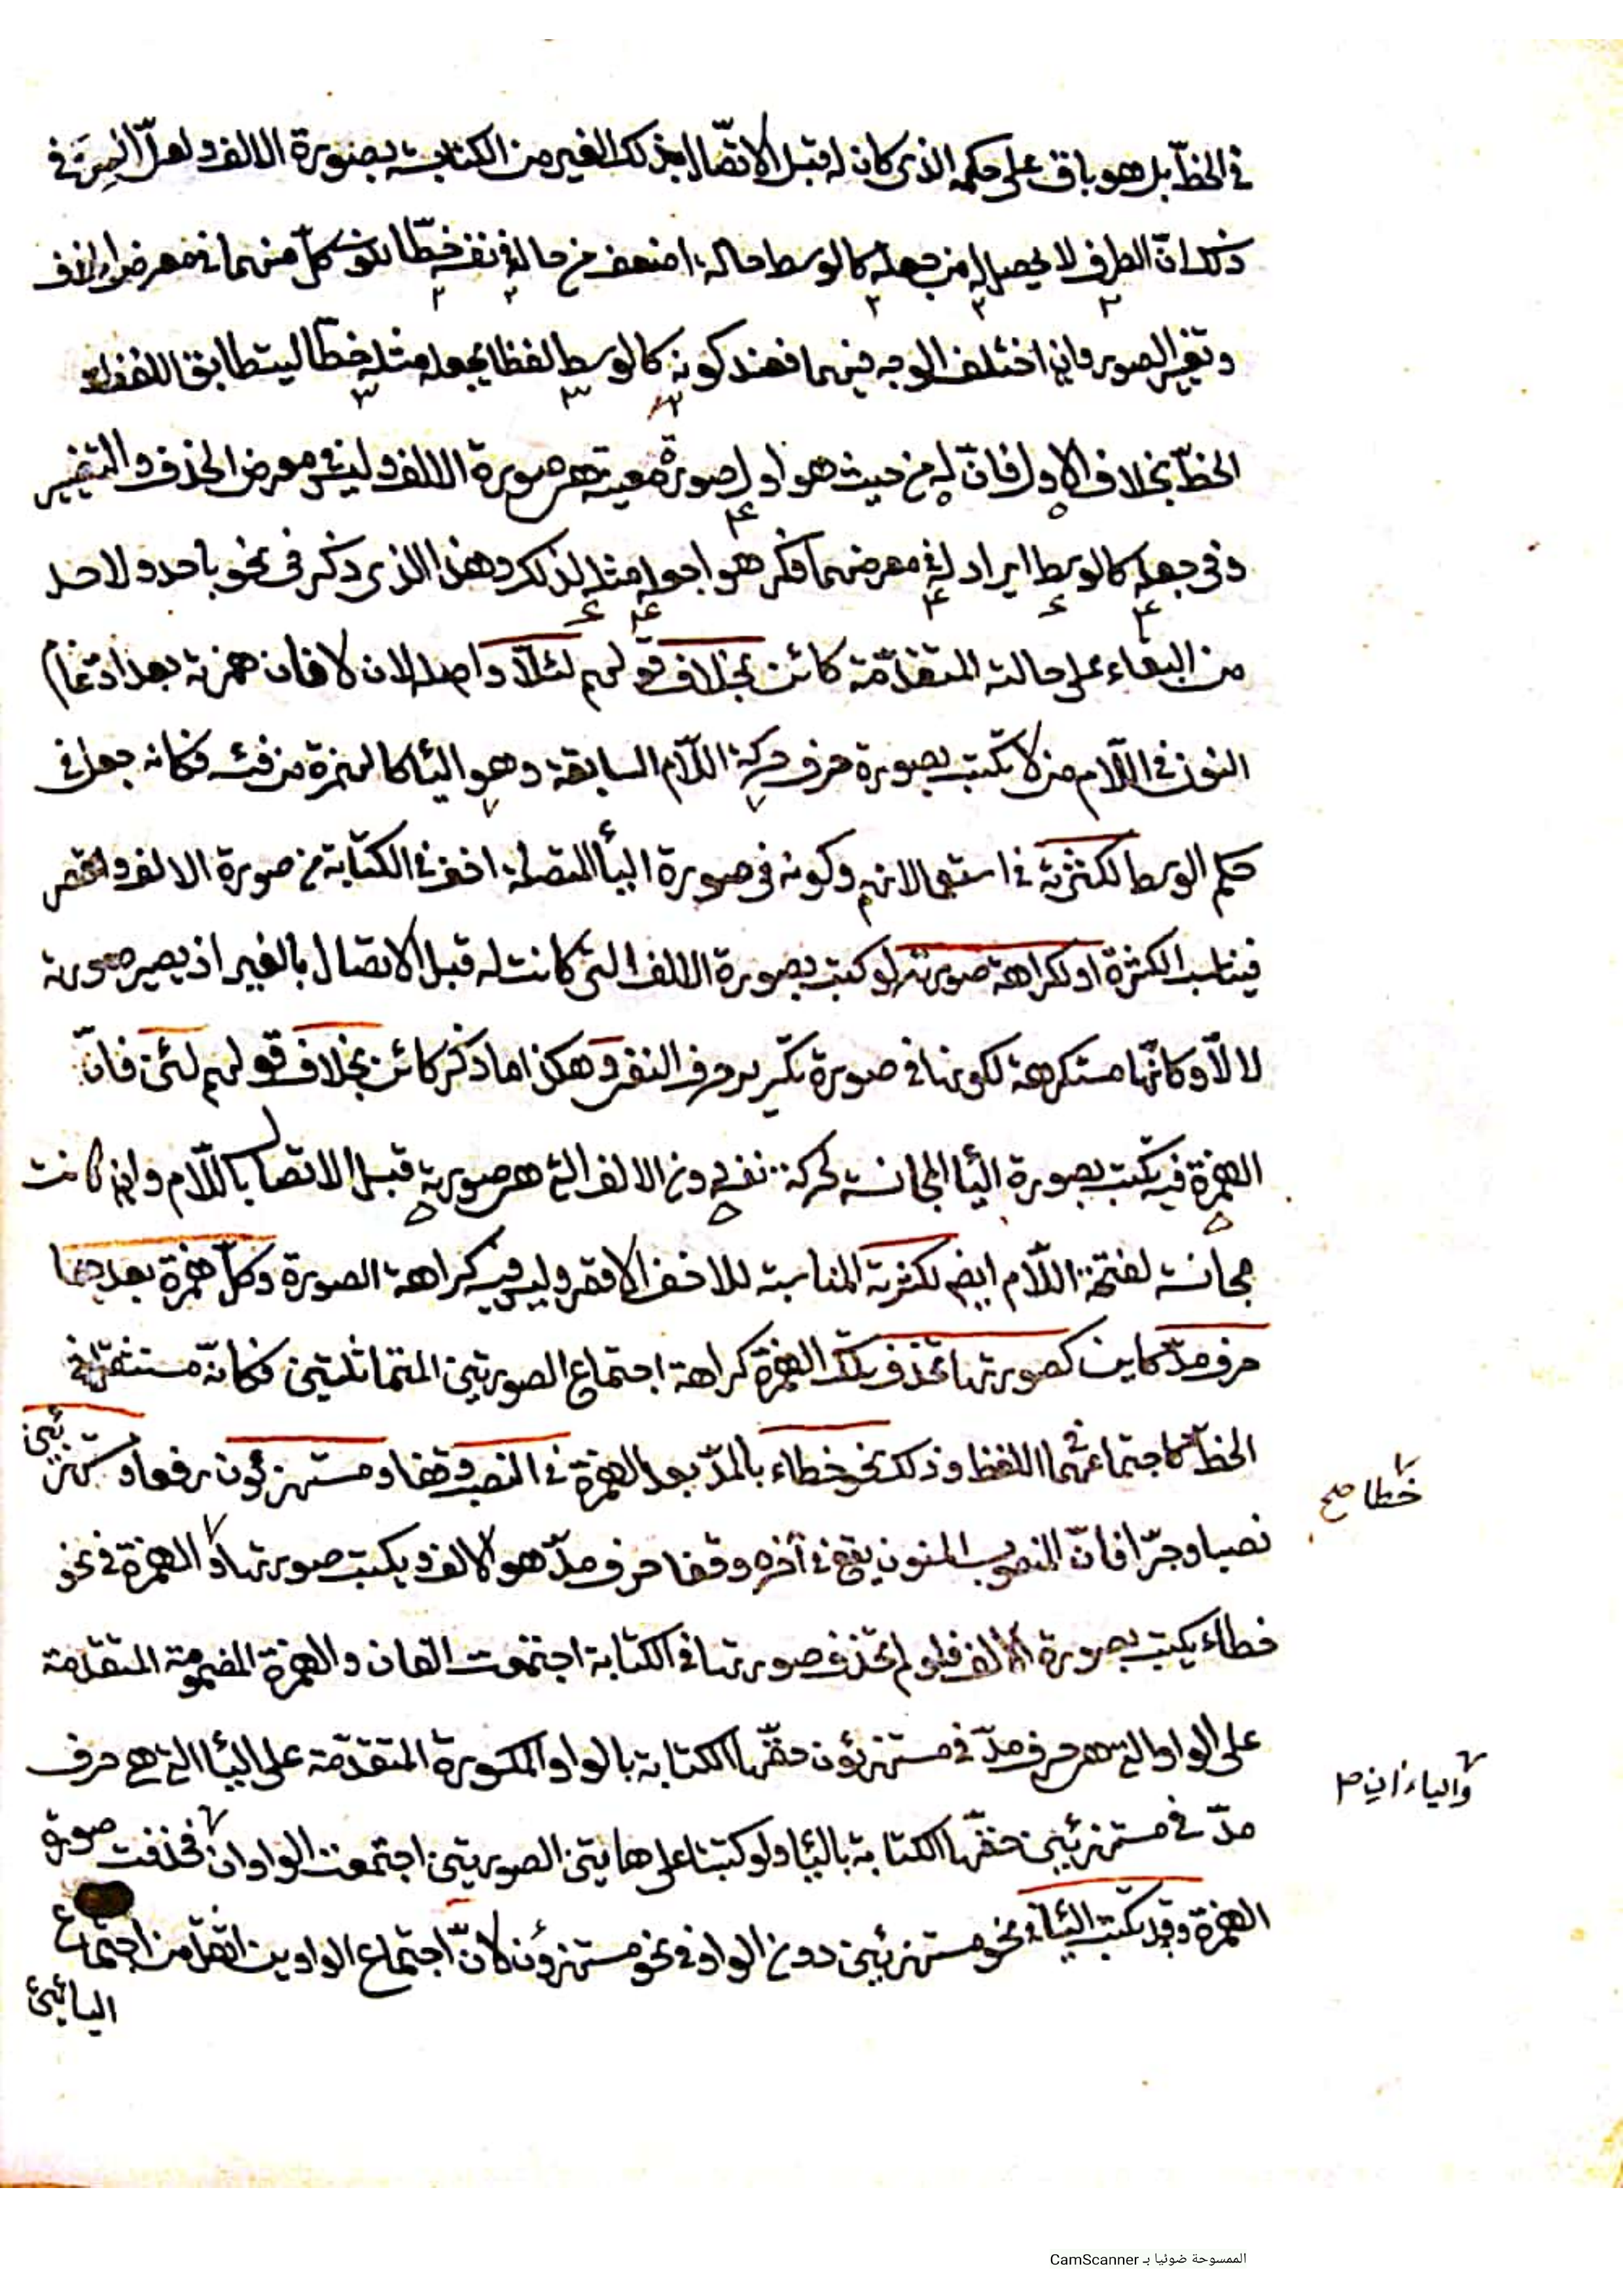 في الخطّ بل هو باق على حكمه الذى كان له قبل الاتصّال بذلك الغير من الكتابت بصورة الالف ولعلّ السِرّ في
ذلك انّ الطرف لا يحصل له من جعله كالوسط حالة اضعف من حاله في نفسه خطّا لكون كلّ منهما في معرض الحذف
وتغيير الصور وان اختلف الوجه فيهما فعند كونه كالوسط لفظا يجعله مثله خطّا ليتطابق اللفظ و
الخطّ بخلاف الاول فانّ له من حيث هو اول صورة معينة هى صورة الالف وليس في معرض الحذف والتغيير
وفى جعله كالوسط ايراد له في معرضهما فكره هو اجعله مثله لذلك وهذا الذى ذكر فى نحو باحد ولاحد
من البقاء على حالته المتقدّمة كائن بخلاف قولهم لئلّا واصله لان لا فان همزته بعد ادغام
النون في اللّام من لا تكتب بصورة حرف حركة اللّام السابقة وهو اليأ كالهمزة من فئه فكانه جعل فى
حكم الوسط لكثرته في استعمالاتهم وكونه فى صورة اليأ المتصلة اخف في الكتابة من صورة الالف واخصر
فيناسب الكثرة او لكراهة صورته لو كتب بصورة الالف التى كانت له قبل الاتصال بالغير اذ يصير صورته
لالّا وكانّها مستكرهة لكونها فى صورة تكرير حرف النفى وهكذا ما ذكر كائن بخلاف قولهم لئن فانّ
الهمزة فيه تكتب بصورة اليأ المجانسة لحركة نفسه دون الالف التى هى صورته قبل الاتصال باللّام وان كانت
مجانسة لفتحة اللّام ايضا لكثرته المناسبة للاخف الاقصر وليس فيه كراهة الصورة وكلّ همزة بعدها
حرف مدّ كاين كصورتها تحذف تلك الهمزة كراهة اجتماع الصورتين المتماثلتين فكانّه مستثقل في
الخطّ كاجتماعهما في اللفظ وذلك نحو خطاء بالمدّ بعد الهمزة في النصب وقفا ومستهزئون رفعا ومستهزئين
نصبا وجرّا فانّ المنصوب المنون يقع في آخره وقفا حرف مدّ هو الالف ويكتب صورتها والهمزة فى نحو
خطاء يكتب بصورة الالف فلو لم تحذف صورتها فى الكتابة اجتمعت الفان والهمزة المضمومة المتقدمة
على الواو التى هى حرف مدّ فى مستهزئون حقّها الكتابة بالواو والمكسورة المتقدّمة على اليأ التى هى حرف
مدّ في مستهزئين حقّها الكتابة باليأ ولو كتبتا على هاتين الصورتين اجتمعت الواوان فحذفت صورة
الهمزة وقد تكتب اليأ في نحو مستهزئين دون الواو فى نحو مستهزؤن لانّ اجتماع الواوين اثقل من اجتماع
اليائين
خطا صح
واليا ءان صح
الممسوحة ضوئيا بـ CamScanner